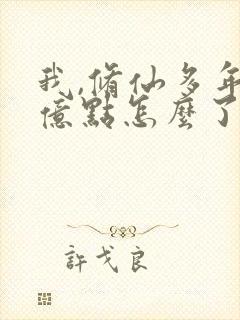 我,脩仙多年
億點怎麼了
許戈良